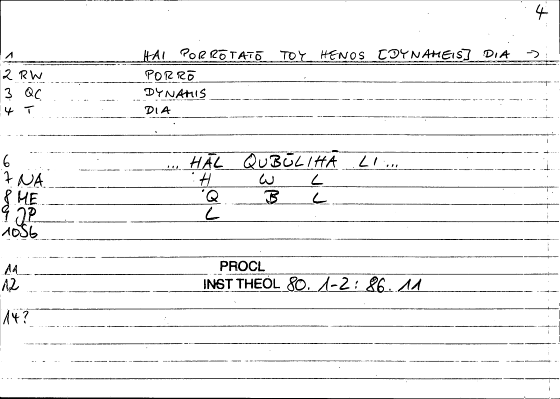 4
1 HAI PORRŌTATŌ TOY HENOS [DYNAMEIS] DIA →
2 RW PORRŌ
3 QC DYNAMIS
4 T DIA
6 ... HĀL QUBŪLIHĀ LI ...
7 NA 'H W L
8 ME 'Q B L
9 JP L
10 S6
11 PROCL
12 INST THEOL 80. 1-2 : 86. 11
14?